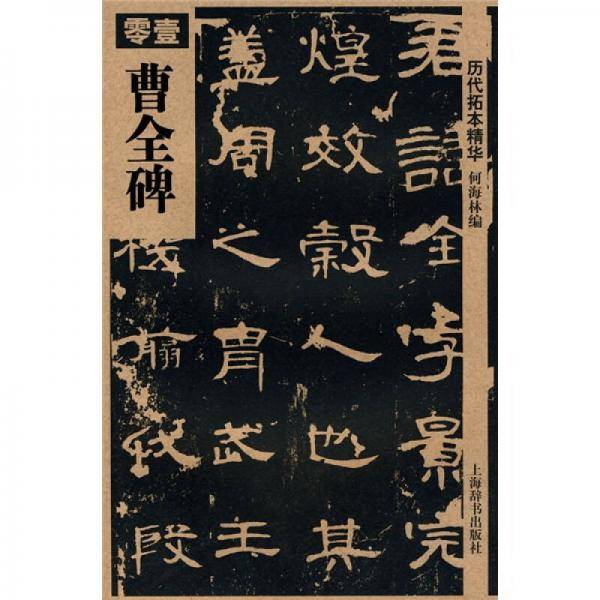 零壹
曹全碑
历代拓本精华
何海林编
上海辞书出版社
君諱全字景完
煌效穀人也其
蓋周之胄武王
機翦伐殷